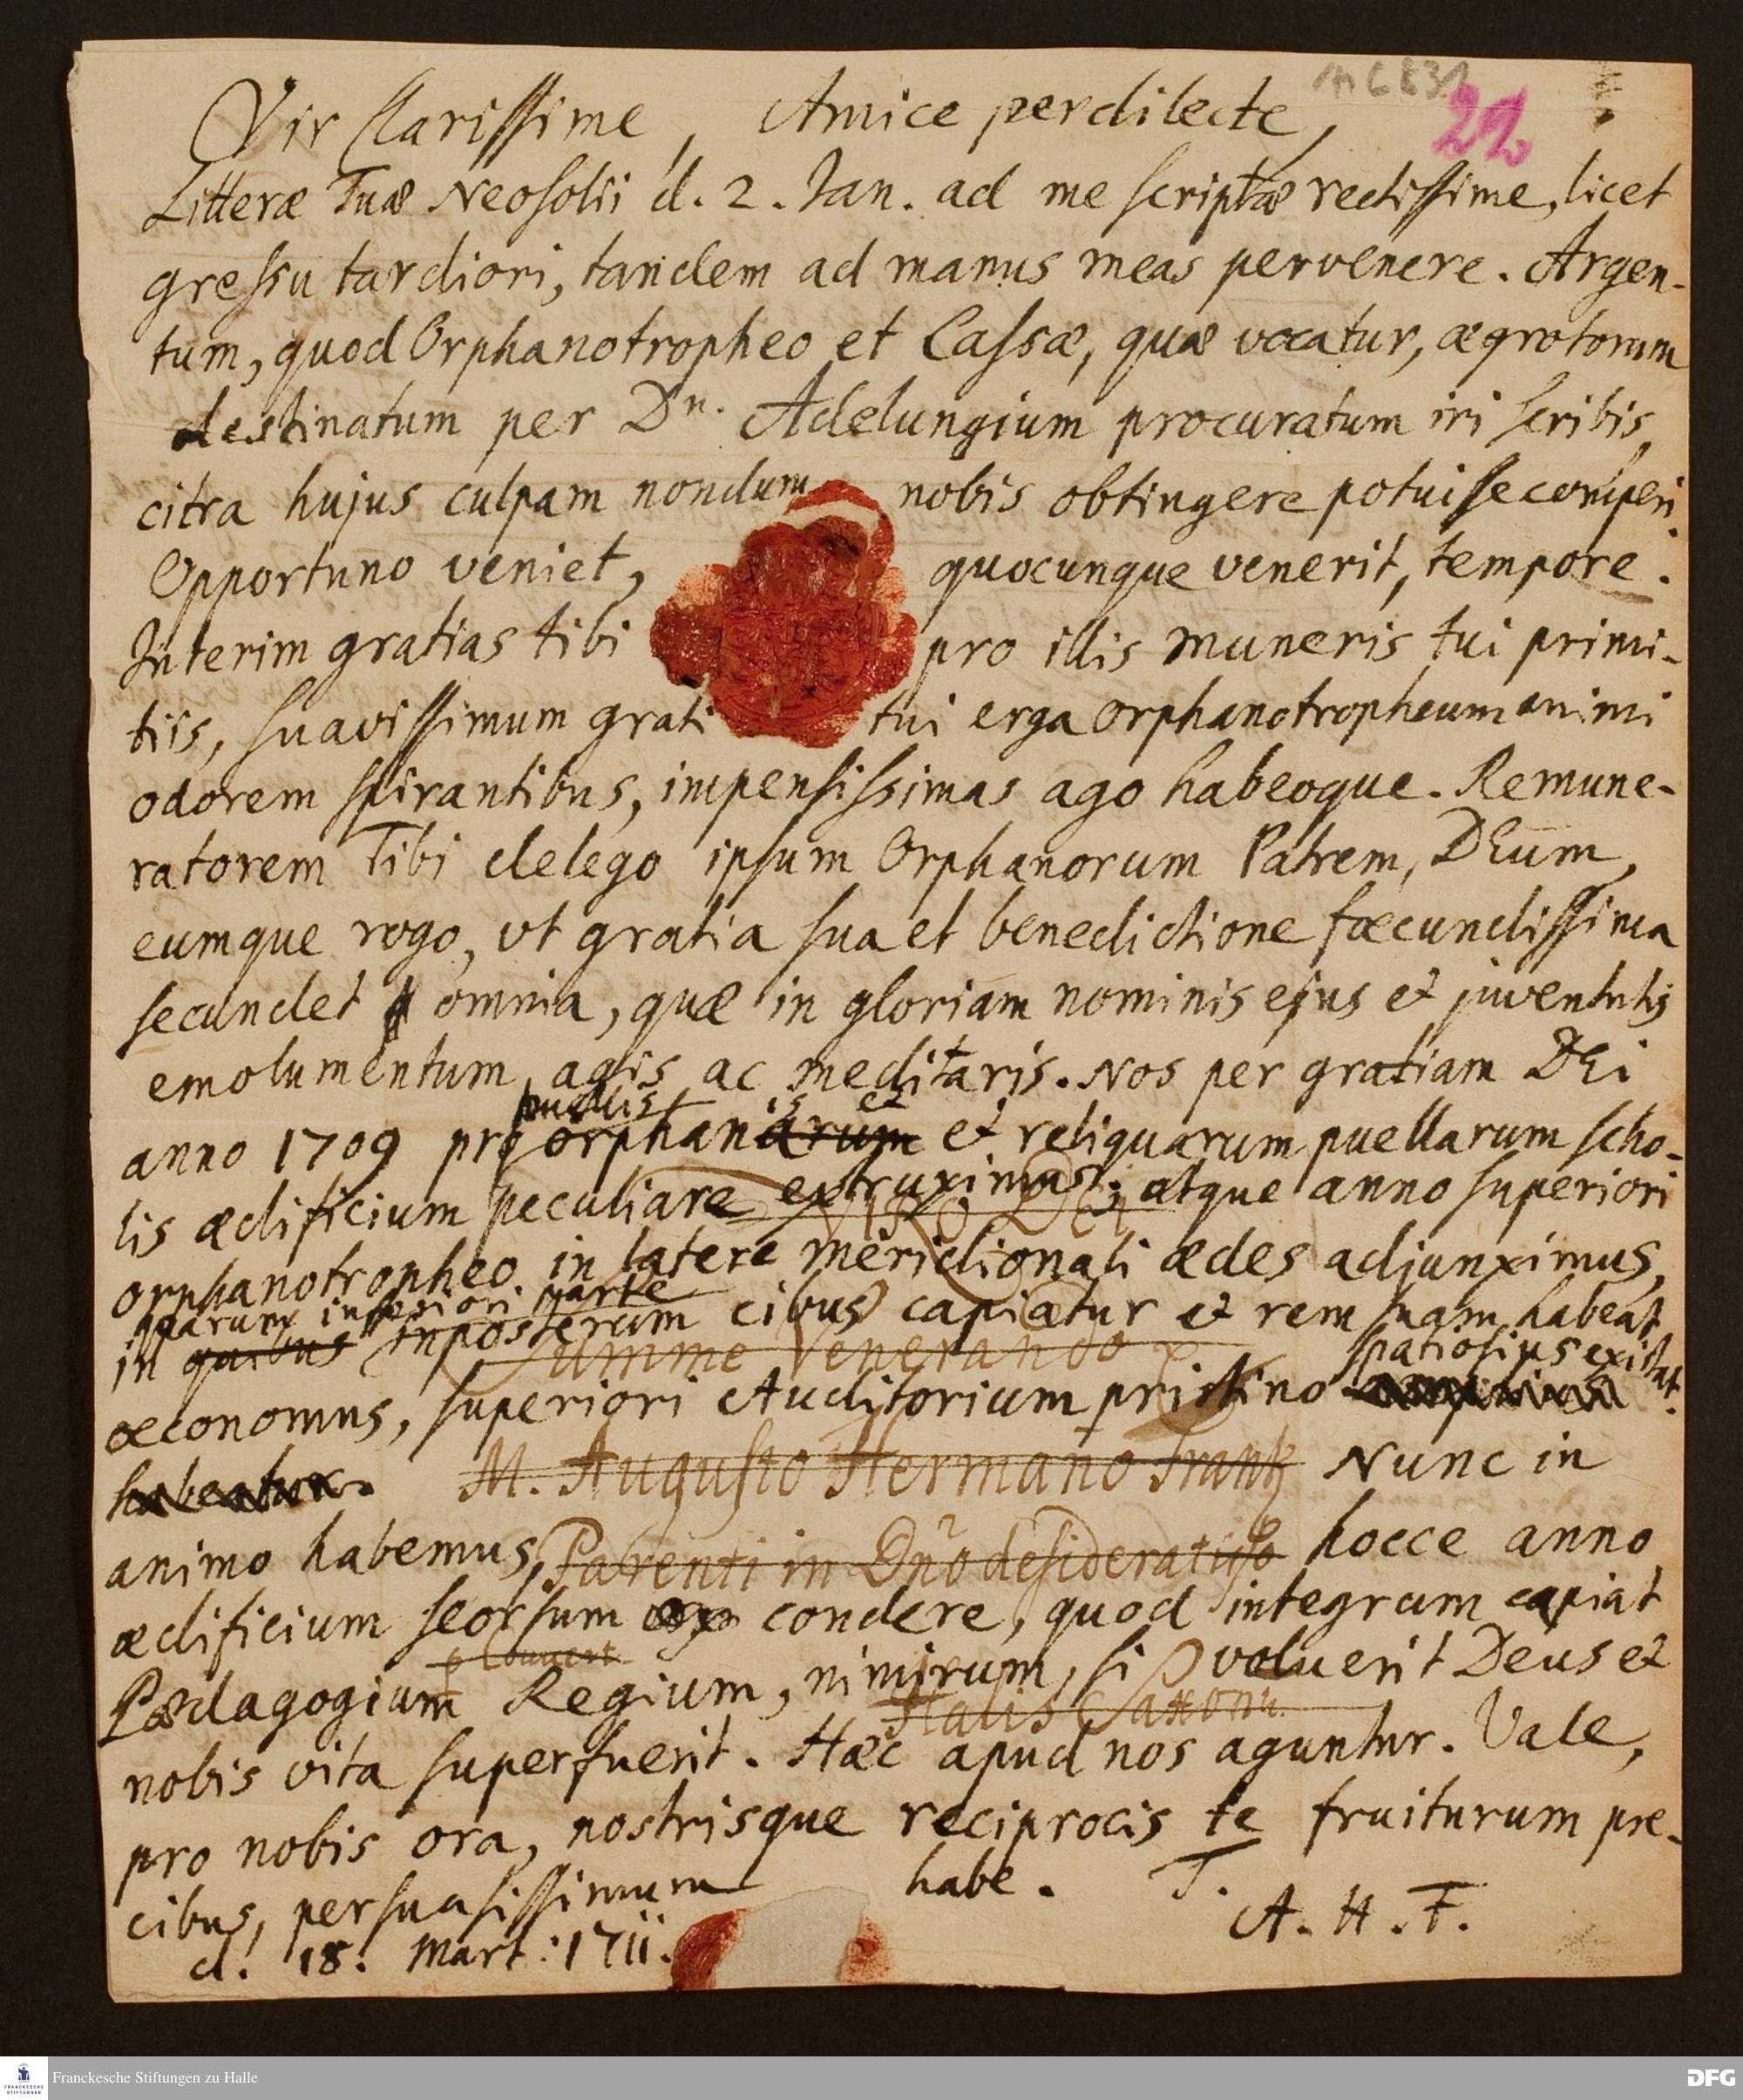 Vir Clarissime, Amice perdilecte,
22
Litteræ Tuæ Neosolii d. 2. Jan. ad me scriptæ rectissime, licet
gressu tardiori, tandem ad manus meas pervenere. Argen-
tum, quod Orphanotropheo et Cassæ, quæ vocatur, ægrotorum
destinatum per Dn. Adelungium procuratum iri scribis,
citra hujus culpam nondum nobis obtingere potuisse comperi.
Opportuno veniet, quocunque venerit, tempore.
Interim gratias tibi pro illis muneris tui primi-
tiis, suavissimum grati tui erga orphanotropheum animi
odorem spirantibus, impensissimas ago habeoque. Remune-
ratorem Tibi delego ipsum Orphanorum Patrem, DEum,
eumque rogo, ut gratia sua et benedictione fœcundissima
secundet omnia, quæ in gloriam nominis ejus et juventutis
emolumentum, agis ac meditaris. Nos per gratiam DEi
puellis is et
anno 1709 pro orphanarum et reliquarum puellarum scho-
lis ædificium peculiare extruximus; atque anno superiori
Viro Dei
orphanotropheo in latere meridionali ædes adjunximus,
quarum inferiori parte
in quibus inposterum cibus capiatur et rem suam habeat
Summe Venerando
spatiosius existat.
œconomus, superiori Auditorium pristino
habeatur. M. Augusto Hermano Frank Nunc in
animo habemus, Parenti in Dno desideratiss hocce anno
ædificium seorsum condere, quod integrum capiat
p Couvert
Pædagogium Regium, nimirum, si voluerit Deus et
Halis Saxonu.
nobis vita superfuerit. Hæc apud nos aguntur. Vale,
pro nobis ora, nostrisque reciprocis te fruiturum pre-
cibus, persuasissimum habe. T.
A. H. F.
d. 18. Mart: 1711.
Franckesche Stiftungen zu Halle
FRANCKESCHE STIFTUNGEN
DFG